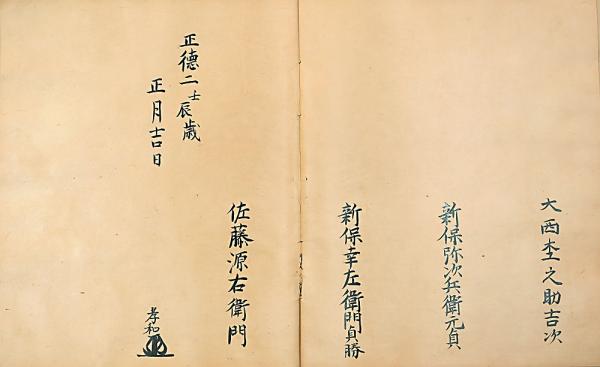 大西杢之助吉次
新保弥次兵衛元貞
新保幸左衛門貞勝
佐藤源右衛門
正德二壬辰歳
正月吉日
孝和